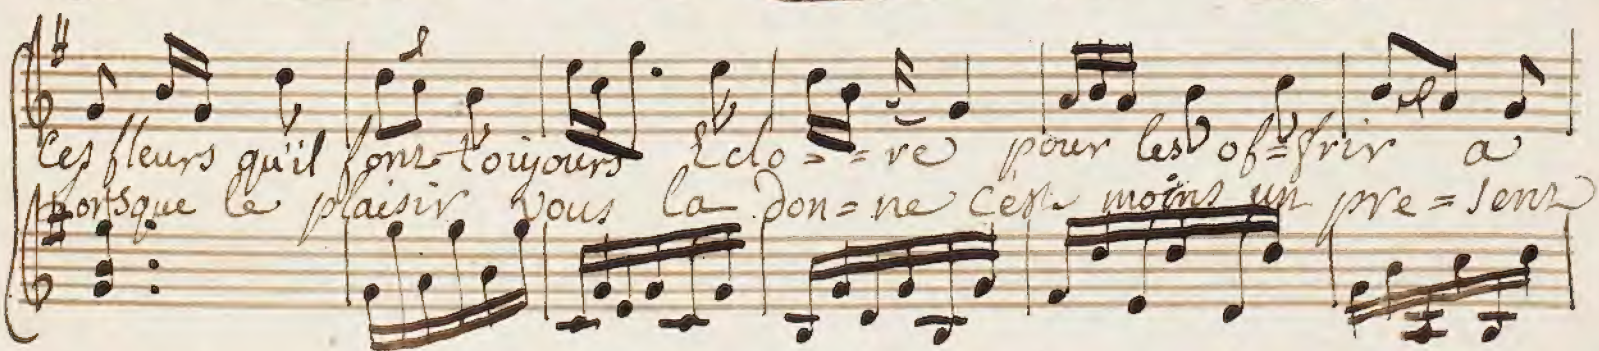 Ces fleurs qu'il font toujours Eclo==re pour les of=frir a
Lorsque le plaisir vous la don=ne c'est moins un pre=sent